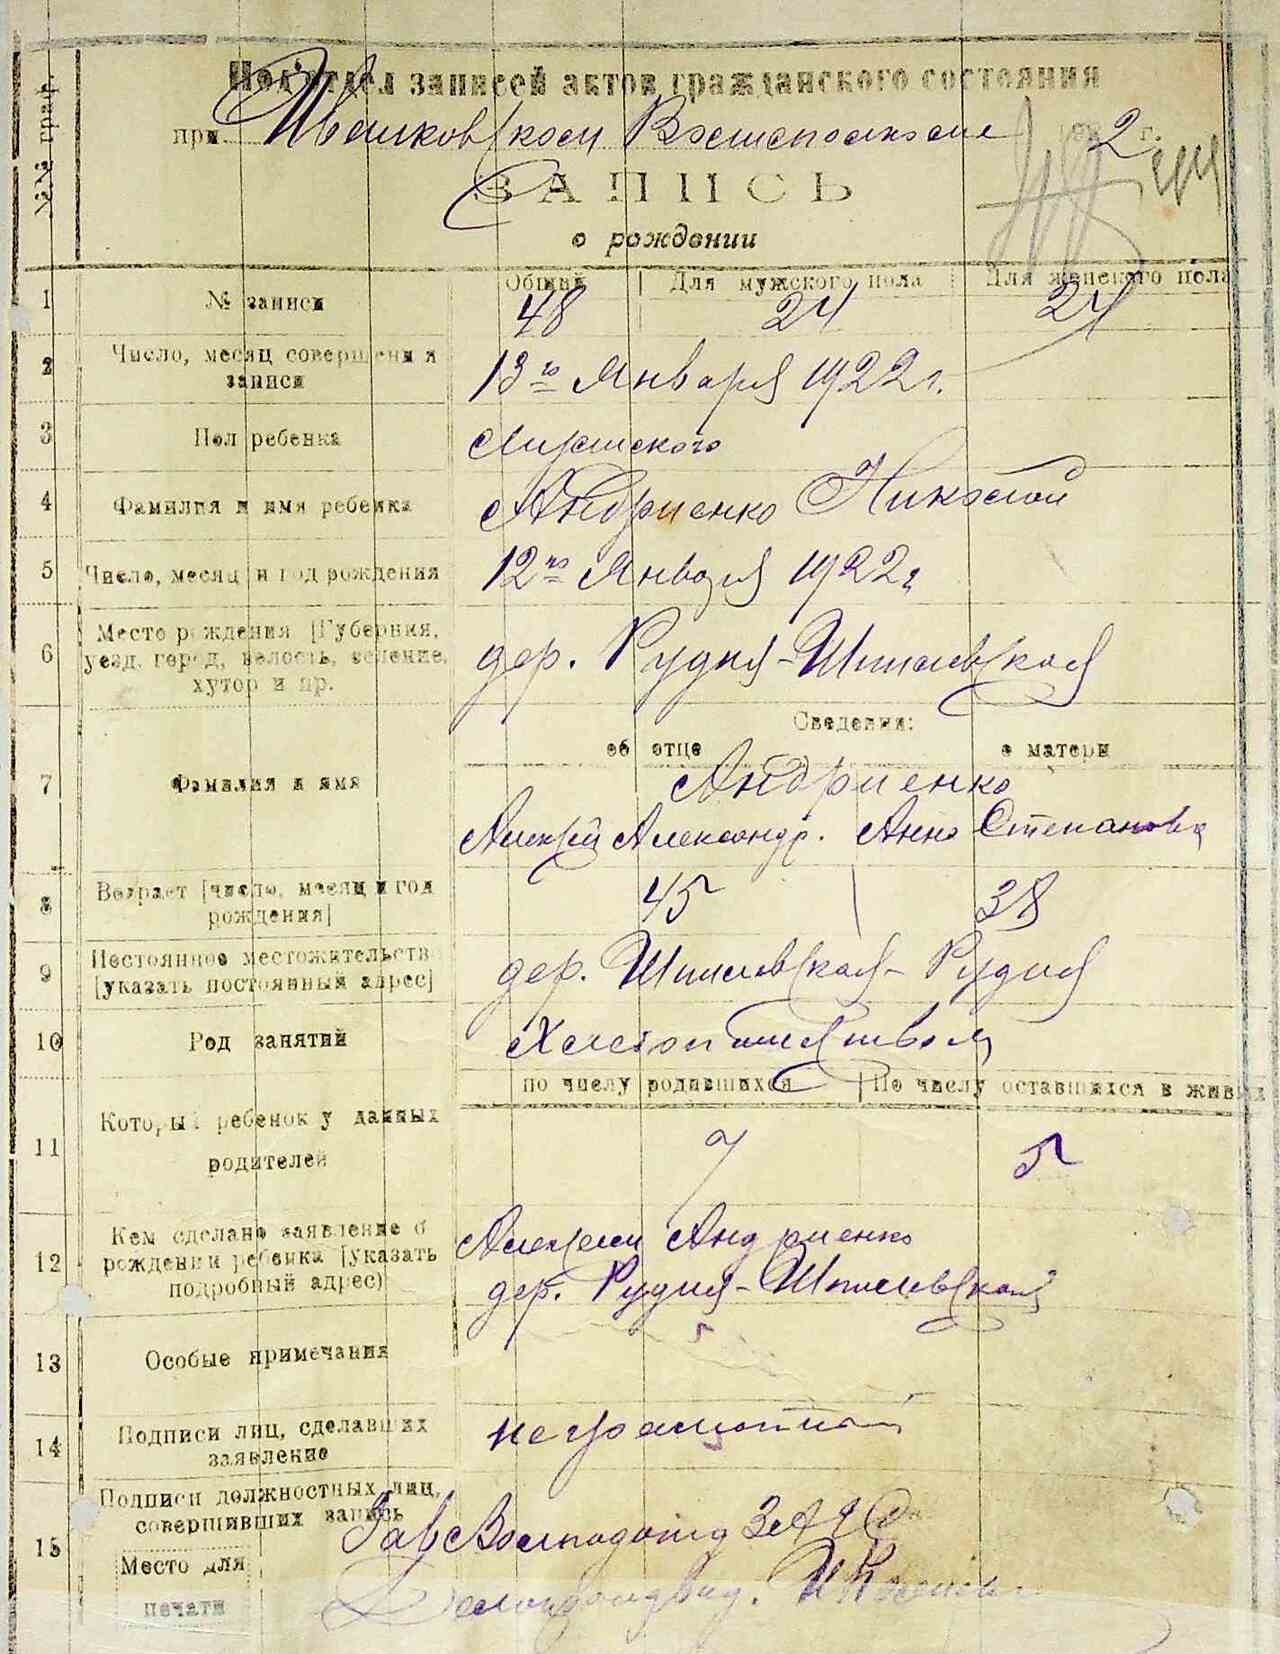 №№ граф.
Подотдел записей актов гражданского состояния
при Ивашковской Волисполкоме 192 2 г.
ЗАПИСЬ
о рождении
Общий Для мужского пола Для женского пола
1 № записи 48 24 24
2 Число, месяц совершения записи 13го Января 1922 г.
3 Пол ребенка Мужского
4 Фамилия и имя ребенка Андриенко Николай
5 Число, месяц и год рождения 12го Января 1922 г.
6 Место рождения [Губерния, уезд, город, волость, селение, хутор и пр. дер. Рудня-Шпилевская
Сведения:
об отце о матери
7 Фамилия и имя Андриенко
Алексей Александр. Анна Степановна
8 Возраст [число, месяц и год рождения] 45 38
9 Постоянное местожительство [указать постоянный адрес] дер. Шпилевская-Рудня
10 Род занятий Хлебопашеством
по числу родившихся По числу оставшихся в живых
11 Который ребенок у данных родителей 7 5
12 Кем сделано заявление о рождении ребенка [указать подробный адрес) Алексеем Андриенко
дер. Рудня-Шпилевская
13 Особые примечания
14 Подписи лиц, сделавших заявление неграмотной
15 Подписи должностных лиц, совершивших запись
Место для
печати